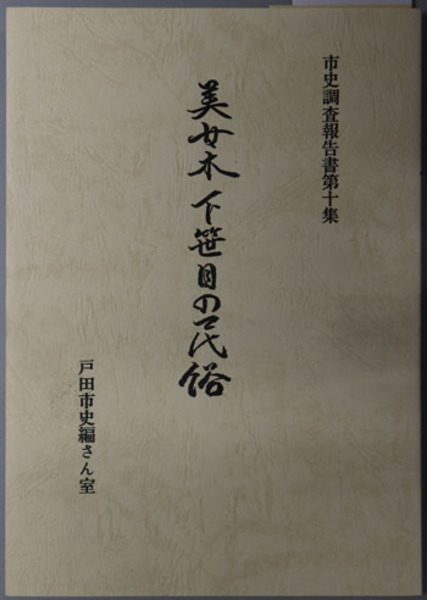 市史調査報告書第十集
美女木 下笹目の民俗
戸田市史編さん室